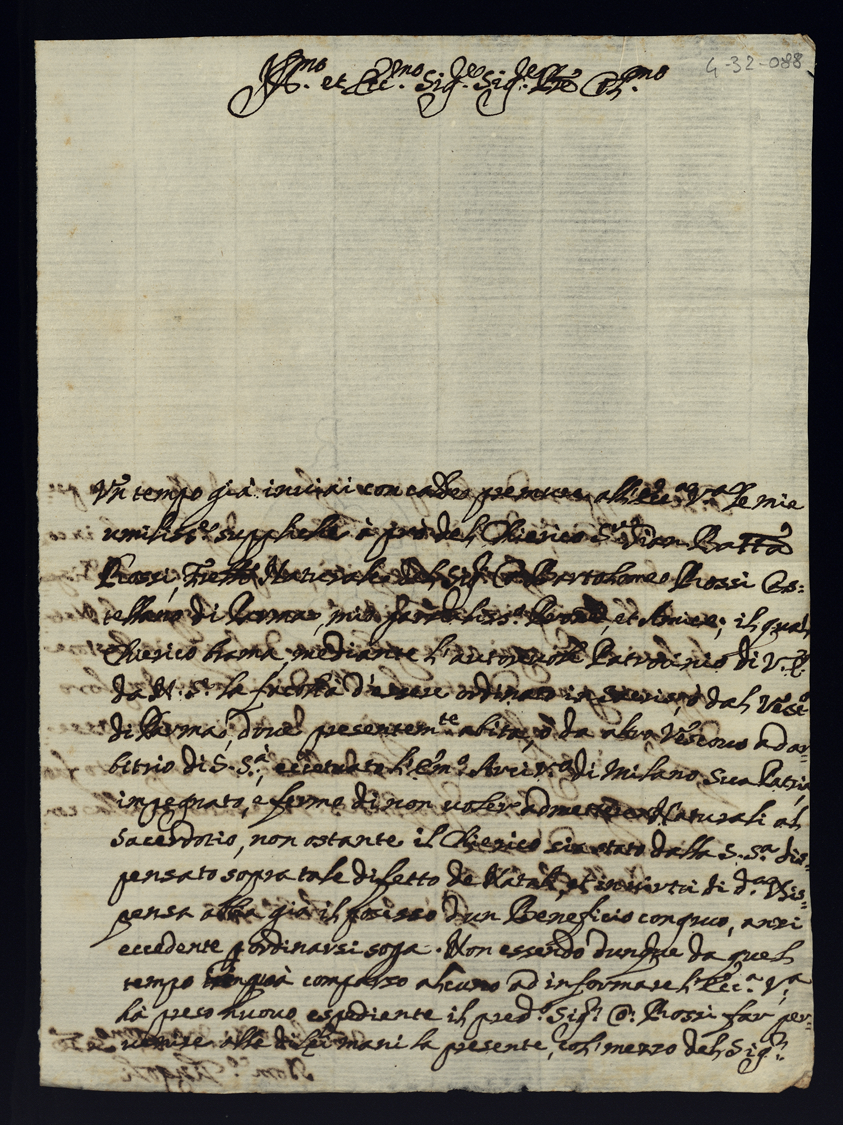 4-32-088
Ill.mo et Ecc.mo Sig.re Sig.re Pr̃e Col.mo
Un tempo già inviai con calde premure all'Ecc.a V.a le mie
umiliss.e suppliche à prò del Chierico Gian Batta
Rossi, Naturale del Sig. Bartolomeo Rossi Cas-
tellano di Parma, mio Pad.ne, et Amico; il qual
Chierico brama, mediante l'autorevole Patrocinio di V.E.
da N. S.re la facoltà d'essere ordinato ò dal Vesc.o
di Parma, dove presentem.te abita, ò da altro Vescovo ad ar-
bitrio di S. S.tà, eccetuato l'Em.o Arciv.o di Milano, sua Patria,
impegnato, e fermo di non voler admettere Naturali al
Sacerdozio, non ostante il Chierico sia stato dalla S. S.tà dis-
pensato sopra tale difetto de Natali, et in virtù di d.a Dis-
pensa abbia già il possesso d'un Beneficio congruo, anzi
eccedente p ordinarsi sopra. Non essendo dunque da quel
tempo in quà comparso alcuno ad informare l'Ecc.a V.a
hà preso nuovo espediente il pred.o Sig.r Rossi far per-
venire alle di Lei mani la presente, col mezzo del Sig.r